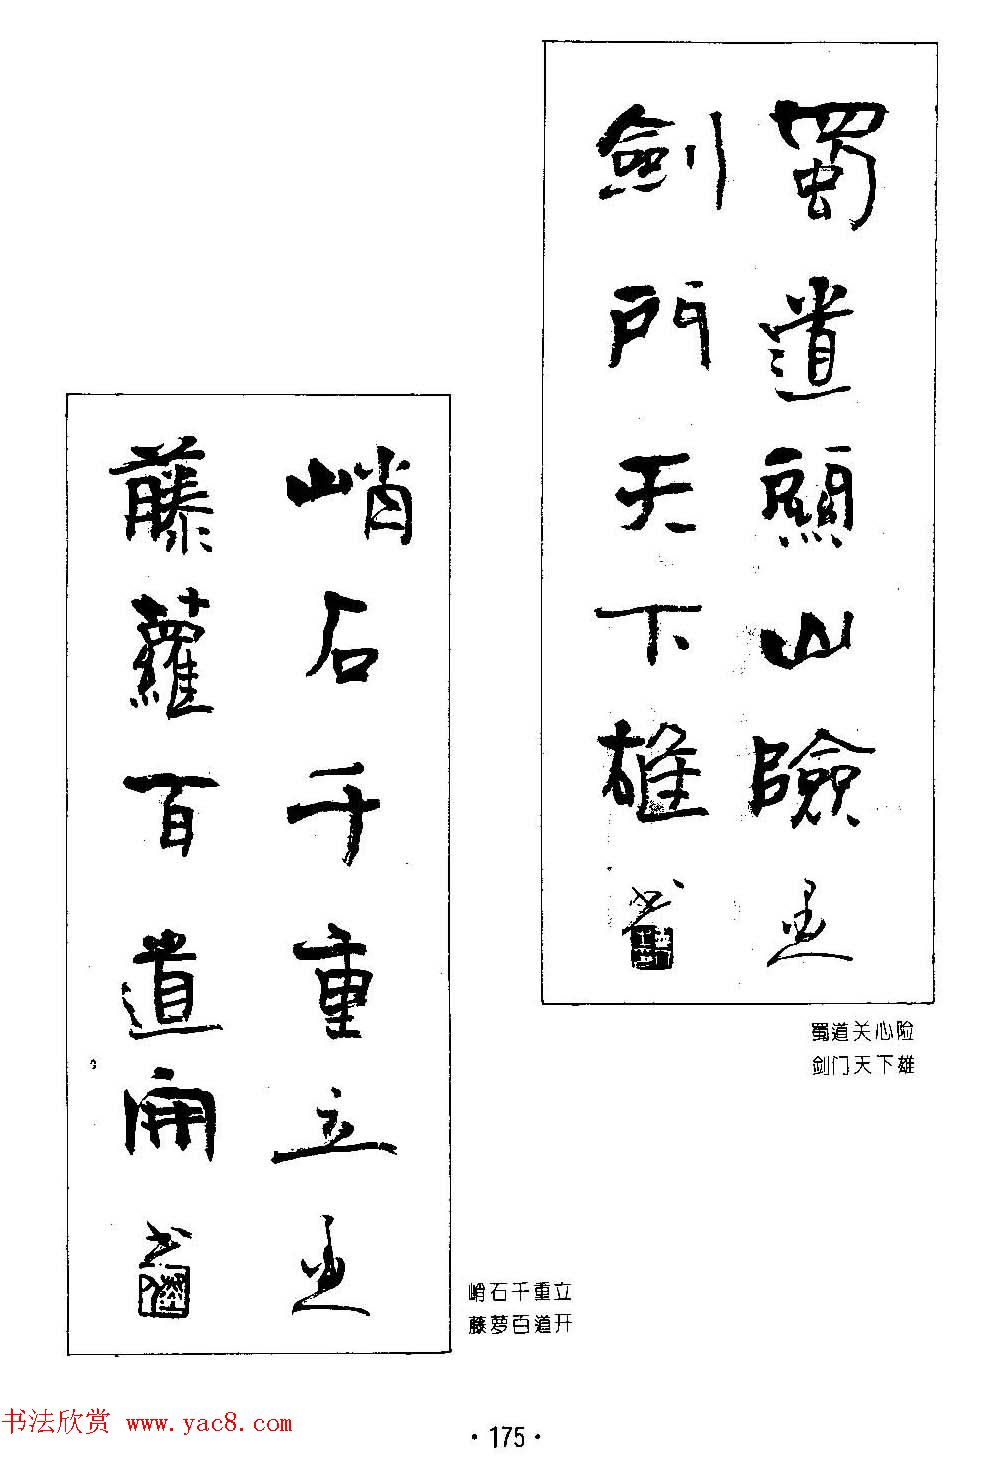 蜀道山險
劍門天下雄 书
蜀道关心险
剑门天下雄
峭石千重立
藤蘿百道開 书
峭石千重立
藤萝百道开
书法欣赏 www.yac8.com
·175·